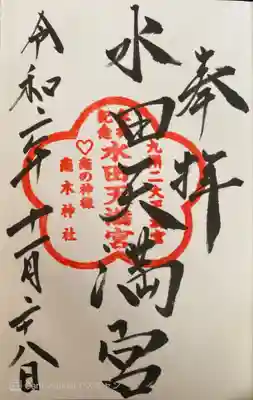 奉拝
水田天満宮
令和二年十一月二十八日
九州二大天満宮
水田天満宮
♡恋の神様
恋木神社